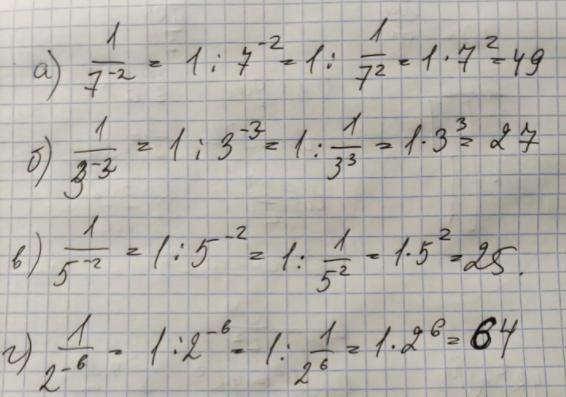 а) 1/7⁻² = 1 : 7⁻² = 1 : 1/7² = 1 · 7² = 49
б) 1/3⁻³ = 1 : 3⁻³ = 1 : 1/3³ = 1 · 3³ = 27
в) 1/5⁻² = 1 : 5⁻² = 1 : 1/5² = 1 · 5² = 25.
г) 1/2⁻⁶ = 1 : 2⁻⁶ = 1 : 1/2⁶ = 1 · 2⁶ = 64